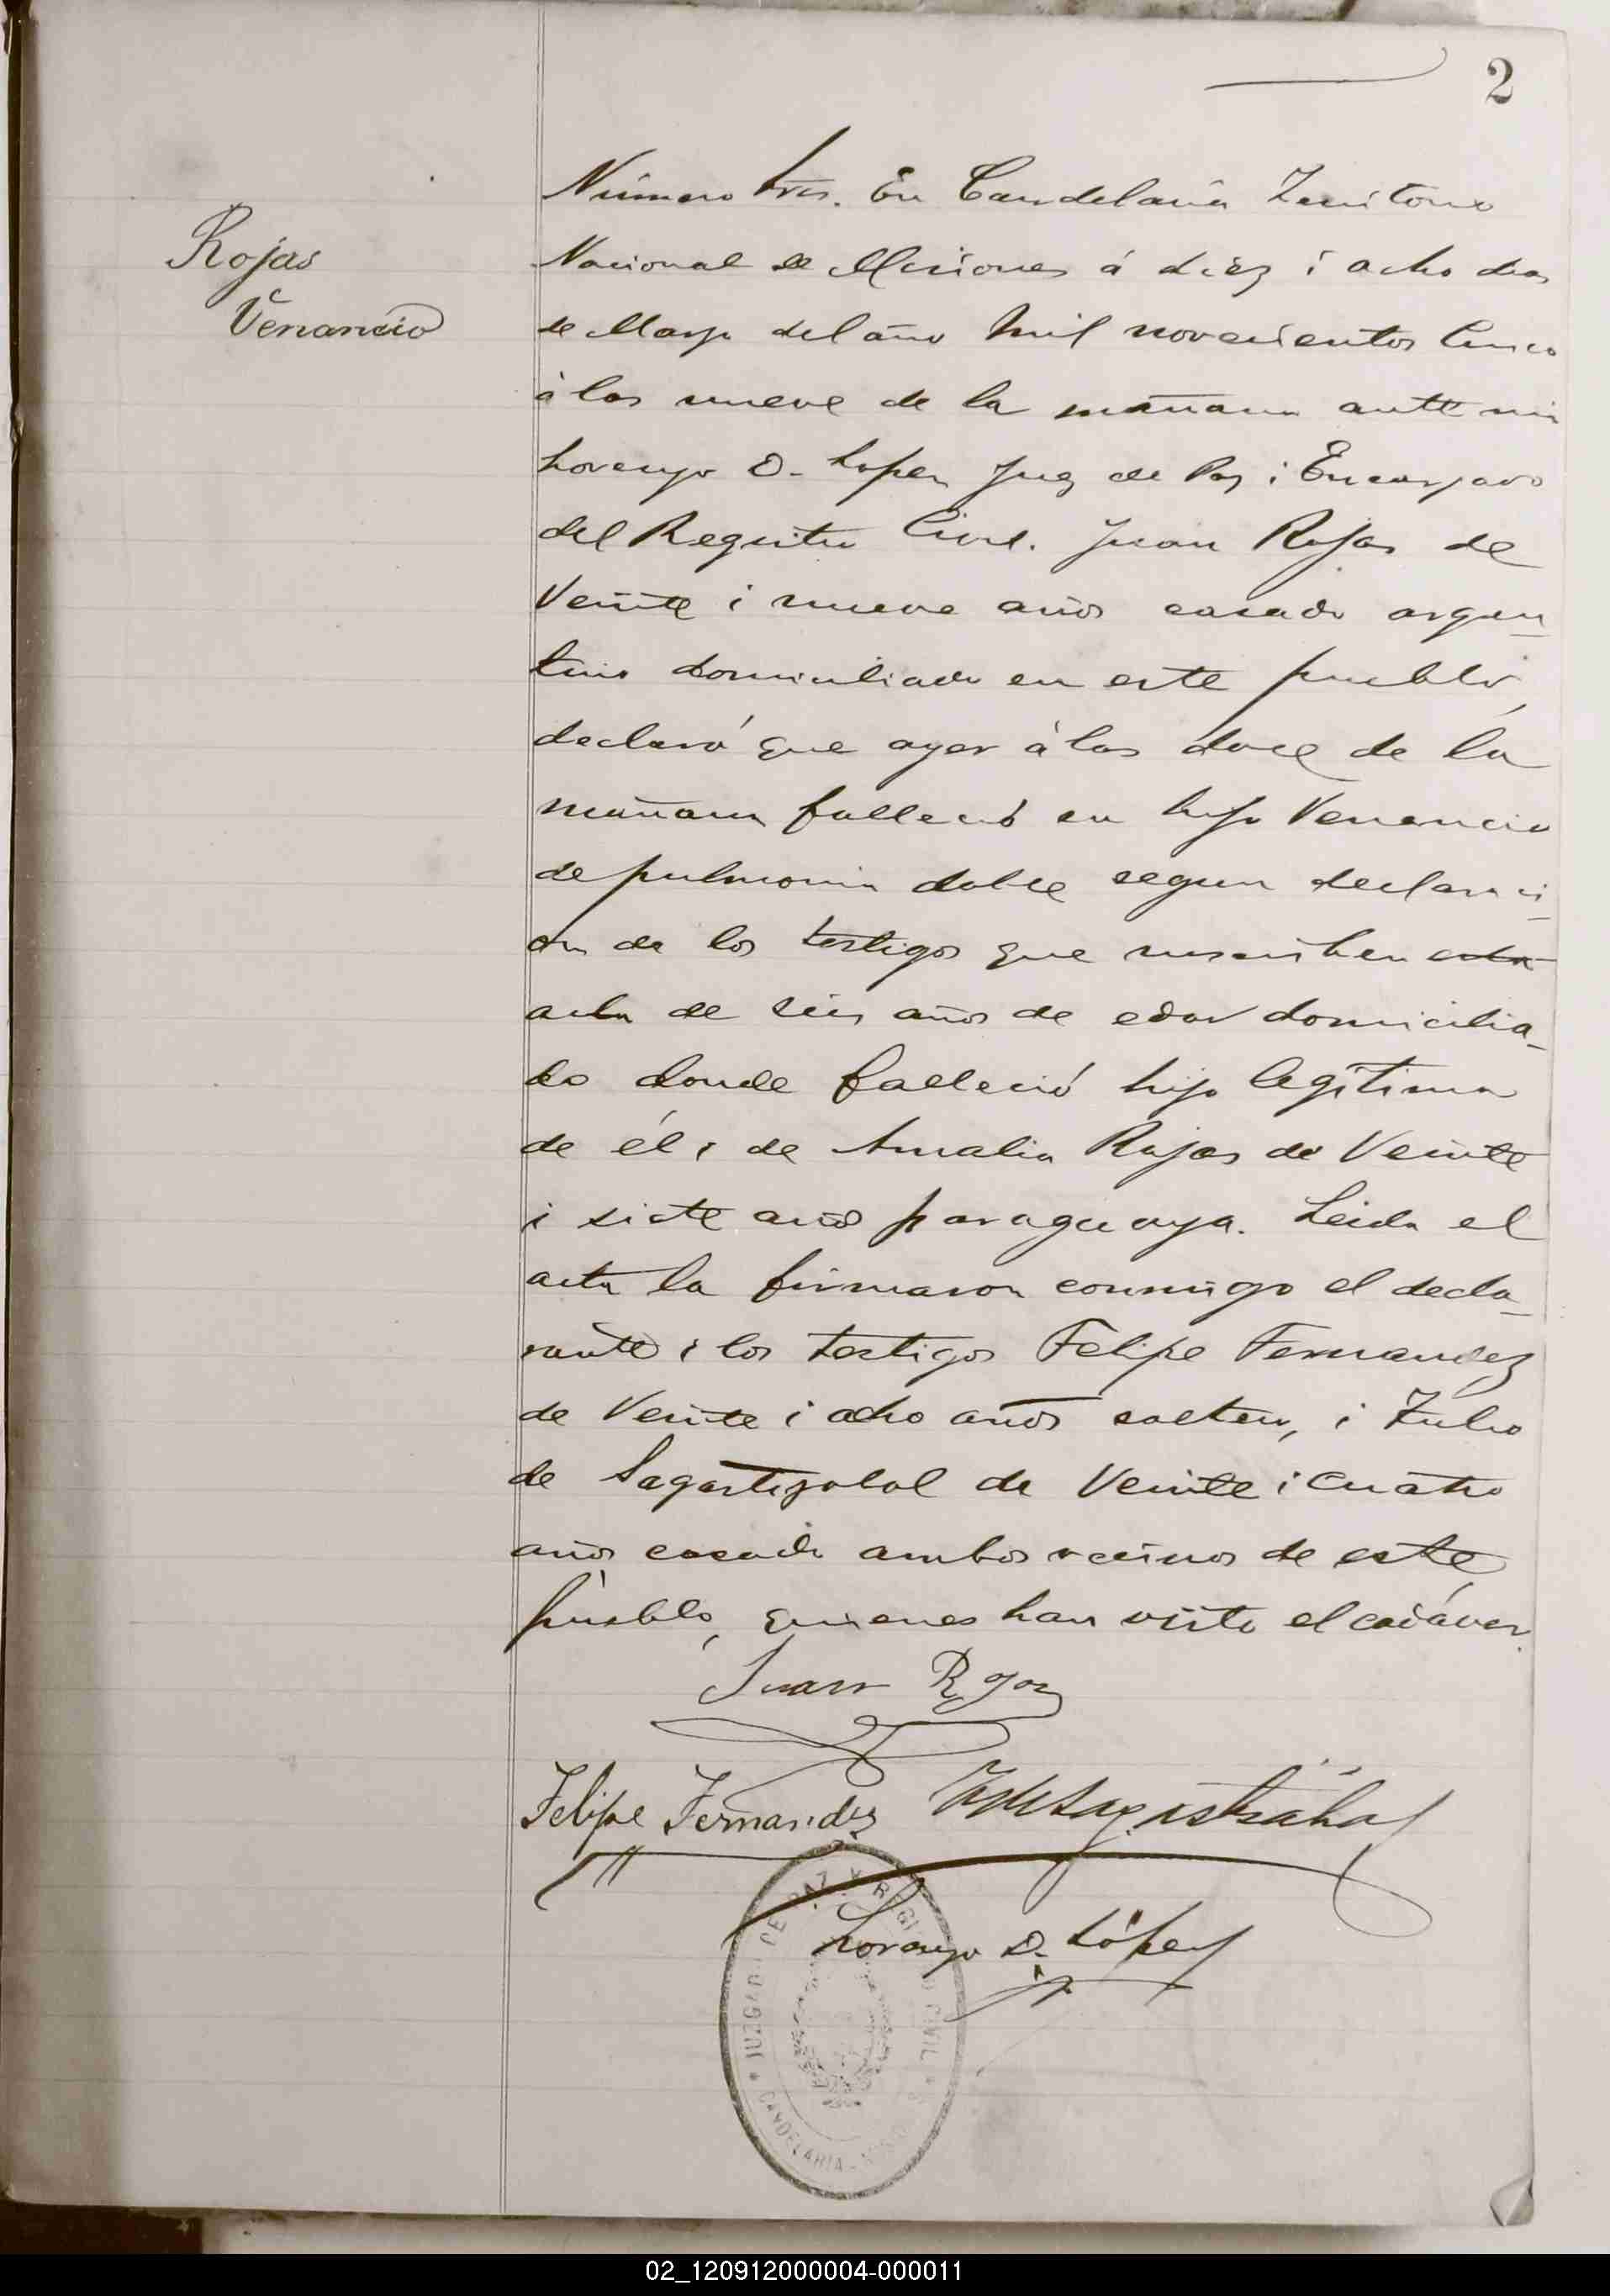 2
Rojas
Venancio
Número tres. En Candelaria Territorio
Nacional de Misiones á diez i ocho dias
de Mayo del año mil novecientos Cinco
á las nueve de la mañana ante mi
Lorenzo D. Lopez Juez de Paz i Encargado
del Registro Civil. Juan Rojas de
Veinte i nueve años casado argen_
tino domiciliado en este pueblo,
declaró que ayer á las doce de la
mañana falleció su hijo Venancio
de pulmonia doble segun declaraci_
on de los testigos que suscriben esta
acta de seis años de edad domicilia_
do donde falleció hijo legítimo
de él i de Amalia Rojas de Veinte
i siete años paraguaya. Leida el
acta la firmaron conmigo el decla_
rante i los testigos Felipe Fernandez
de Veinte i ocho años soltero, i Julio
de de Veinte i cuatro
años casado ambos vecinos de este
pueblo, quienes han visto el cadáver.
Juan Rojas
Felipe Fernandez
Lorenzo D. López
JUZGADO DE PAZ Y REGISTRO CIVIL
CANDELARIA
02_120912000004-000011